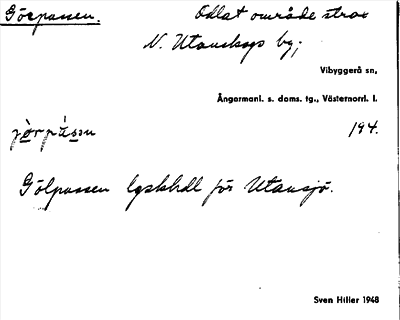 Görpassen. Odlat område strax
N. Utanskogs by;
Vibyggerå sn,
Ångermanl. s. doms. tg., Västernorrl. l.
194.
Gölpassen lgskhdl för Utansjö.
Sven Hiller 1948